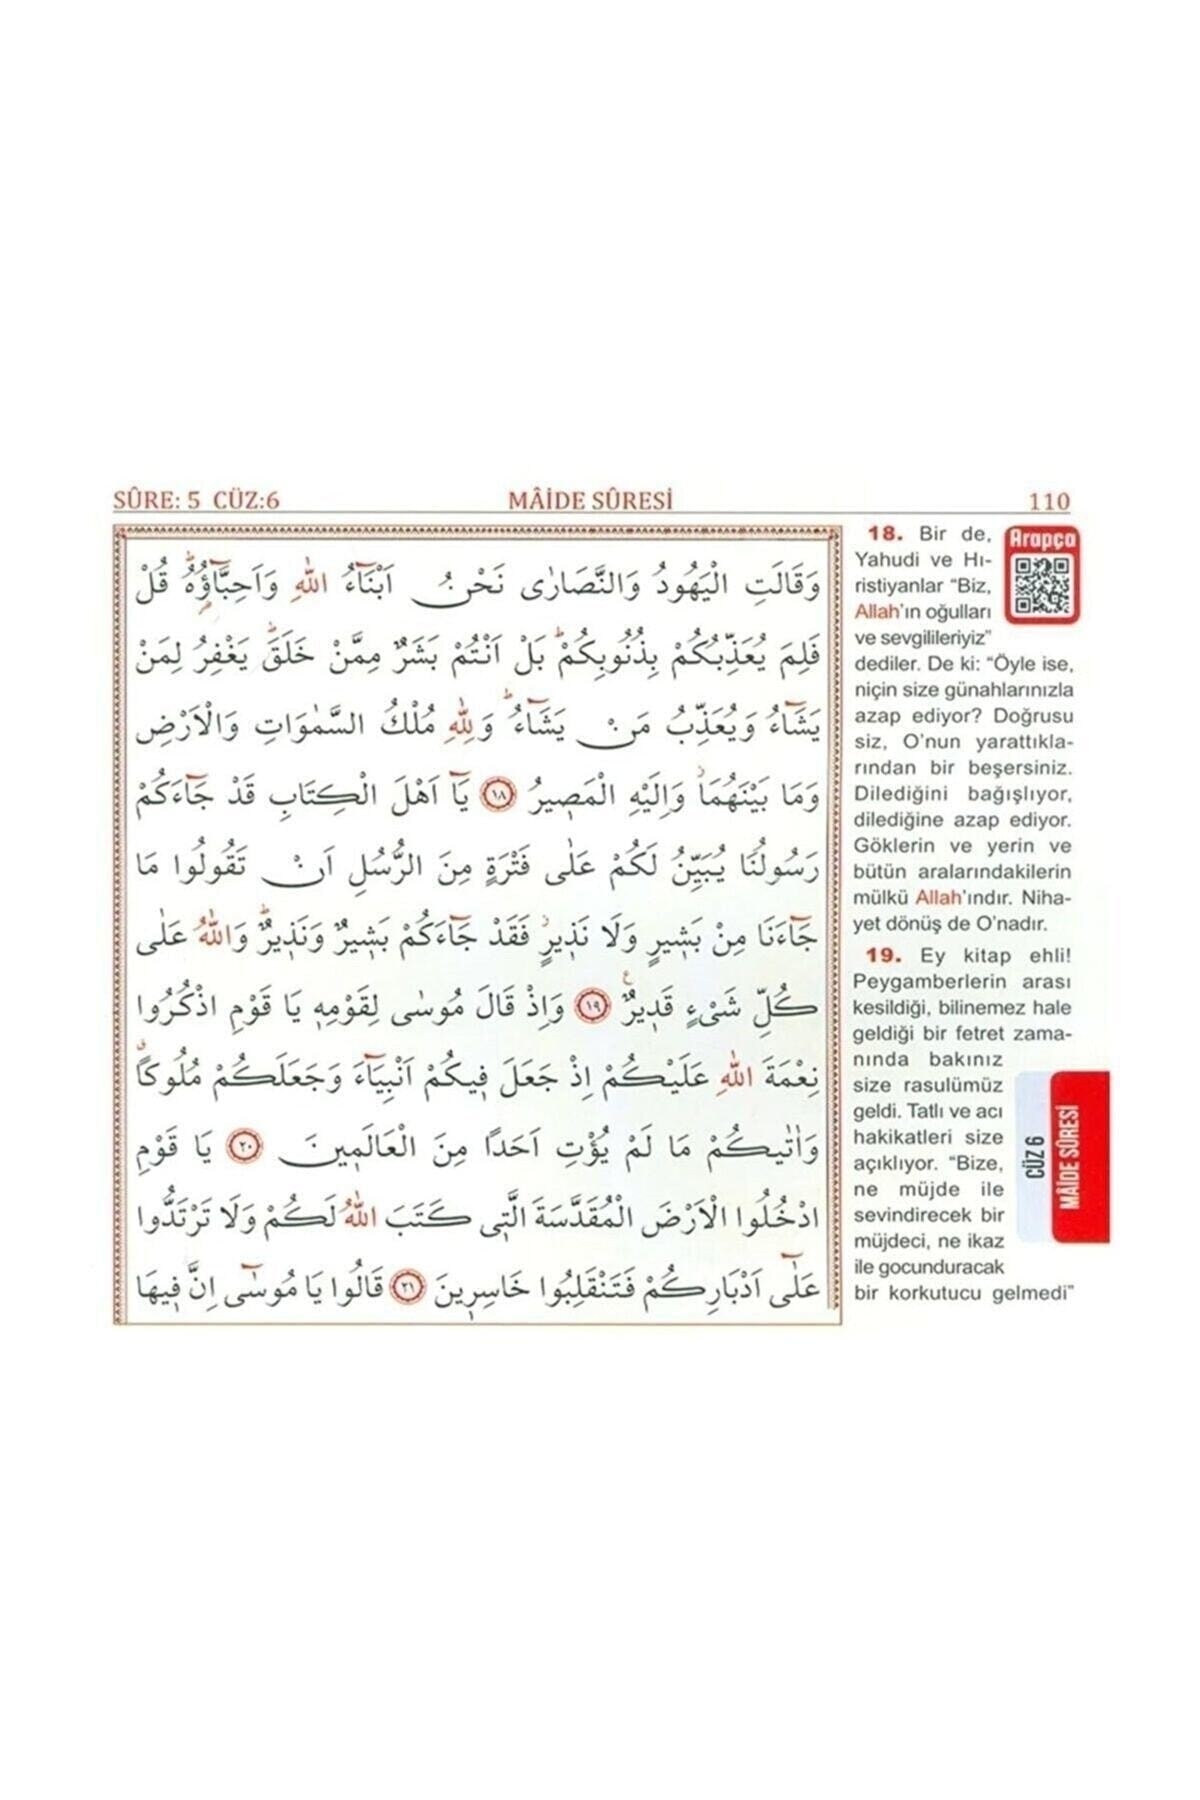 SÛRE: 5 CÜZ:6
MÂİDE SÛRESİ
110
وَقَالَتِ الْيَهُودُ وَالنَّصَارٰى نَحْنُ اَبْنَٓاءُ اللّٰهِ وَاَحِبَّٓاؤُ۬هُۜ قُلْ
فَلِمَ يُعَذِّبُكُمْ بِذُنُوبِكُمْۜ بَلْ اَنْتُمْ بَشَرٌ مِمَّنْ خَلَقَۜ يَغْفِرُ لِمَنْ
يَشَٓاءُ وَيُعَذِّبُ مَنْ يَشَٓاءُۜ وَلِلّٰهِ مُلْكُ السَّمٰوَاتِ وَالْاَرْضِ
وَمَا بَيْنَهُمَاۘ وَاِلَيْهِ الْمَص۪يرُ ﴿١٨﴾ يَٓا اَهْلَ الْكِتَابِ قَدْ جَٓاءَكُمْ
رَسُولُنَا يُبَيِّنُ لَكُمْ عَلٰى فَتْرَةٍ مِنَ الرُّسُلِ اَنْ تَقُولُوا مَا
جَٓاءَنَا مِنْ بَش۪يرٍ وَلَا نَذ۪يرٍۘ فَقَدْ جَٓاءَكُمْ بَش۪يرٌ وَنَذ۪يرٌۜ وَاللّٰهُ عَلٰى
كُلِّ شَيْءٍ قَد۪يرٌ۟ ﴿١٩﴾ وَاِذْ قَالَ مُوسٰى لِقَوْمِه۪ يَا قَوْمِ اذْكُرُوا
نِعْمَةَ اللّٰهِ عَلَيْكُمْ اِذْ جَعَلَ ف۪يكُمْ اَنْبِيَٓاءَ وَجَعَلَكُمْ مُلُوكًاۗ
وَاٰتٰيكُمْ مَا لَمْ يُؤْتِ اَحَدًا مِنَ الْعَالَم۪ينَ ﴿٢٠﴾ يَا قَوْمِ
ادْخُلُوا الْاَرْضَ الْمُقَدَّسَةَ الَّت۪ي كَتَبَ اللّٰهُ لَكُمْ وَلَا تَرْتَدُّوا
عَلٰٓى اَدْبَارِكُمْ فَتَنْقَلِبُوا خَاسِر۪ينَ ﴿٢١﴾ قَالُوا يَا مُوسٰٓى اِنَّ ف۪يهَا
Arapça
18. Bir de,
Yahudi ve Hı-
ristiyanlar “Biz,
Allah'ın oğulları
ve sevgilileriyiz”
dediler. De ki: “Öyle ise,
niçin size günahlarınızla
azap ediyor? Doğrusu
siz, O'nun yarattıkla-
rından bir beşersiniz.
Dilediğini bağışlıyor,
dilediğine azap ediyor.
Göklerin ve yerin ve
bütün aralarındakilerin
mülkü Allah'ındır. Niha-
yet dönüş de O'nadır.
19. Ey kitap ehli!
Peygamberlerin arası
kesildiği, bilinemez hale
geldiği bir fetret zama-
nında bakınız
size rasulümüz
geldi. Tatlı ve acı
hakikatleri size
açıklıyor. “Bize,
ne müjde ile
sevindirecek bir
müjdeci, ne ikaz
ile gocunduracak
bir korkutucu gelmedi”
CÜZ 6
MÂİDE SÛRESİ